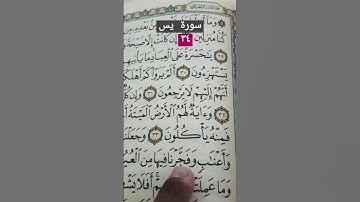 سورة يس
٣٤
كُنَّا مُنزِلِينَ كَانَتْ إِلَّا صَيْحَةً
يَٰحَسْرَةً عَلَى ٱلْعِبَادِ مَا يَأْتِيهِم
يَسْتَهْزِءُونَ ٣٠ أَلَمْ يَرَوْا۟ كَمْ أَهْلَكْ
أَنَّهُمْ إِلَيْهِمْ لَا يَرْجِعُونَ ٣١ وَإِن كُ
وَءَايَةٌ لَّهُمُ ٱلْأَرْضُ ٱلْمَيْتَةُ
فَمِنْهُ يَأْكُلُونَ ٣٣ وَجَعَلْنَ
وَأَعْنَٰبٍ وَفَجَّرْنَا فِيهَا مِنَ ٱلْعُيُ
وَمَا عَمِلَتْ أَفَلَا يَشْ